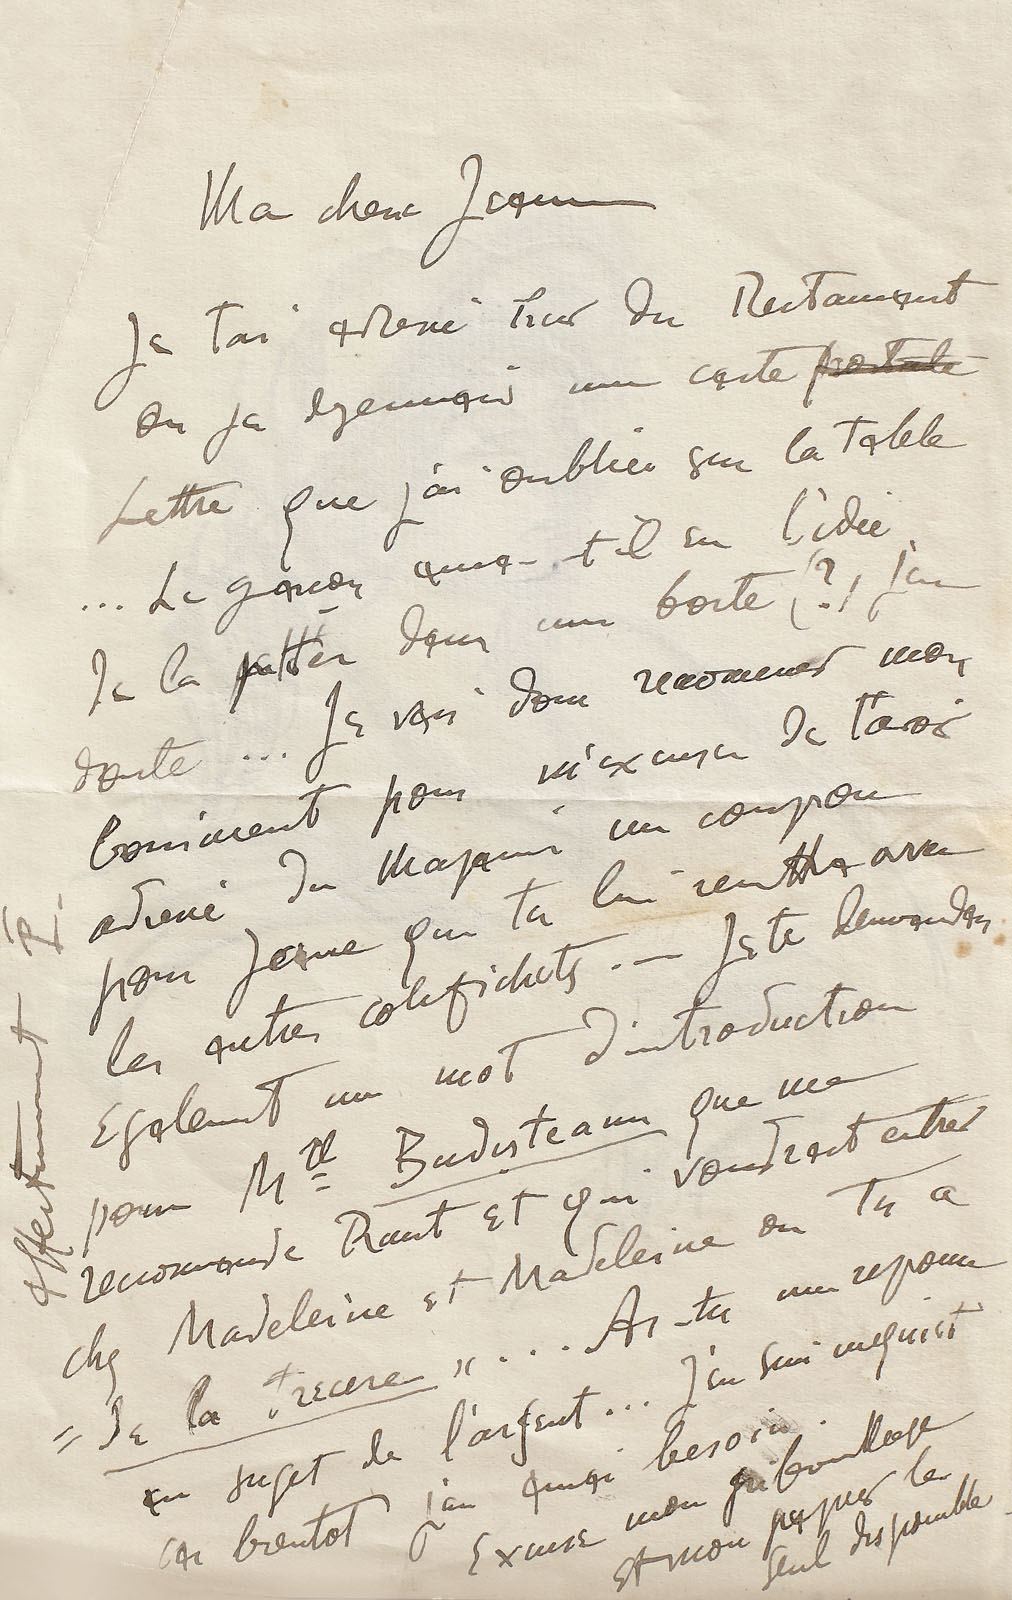 Ma chere Jeanne
Je t'ai adressé hier du Restaurant
ou je dejeunais une carte postale
Lettre que j'ai oubliée sur la table
... Le garçon aura-t-il eu l'idée
de la jetter dans une boite (?) j'en
doute ... Je vais donc recommencer mon
boniment pour m'excuser de t'avoir
adressé du Magasin un coupon
pour Jeanne que tu lui remettra avec
les autres colifichets. — Je te demandais
egalement un mot d'introduction
pour Mlle Budisteanu que me
recommande Raut et qui voudrait entrer
chez Madeleine et Madeleine ou tu a
= de la trecere " .... As-tu une reponse
au sujet de l'argent... J'en suis inquiet
car bientot j'en aurai besoin.
Excuse mon gribouillage
et mon papier le
seul disponible
Affectueusement R.